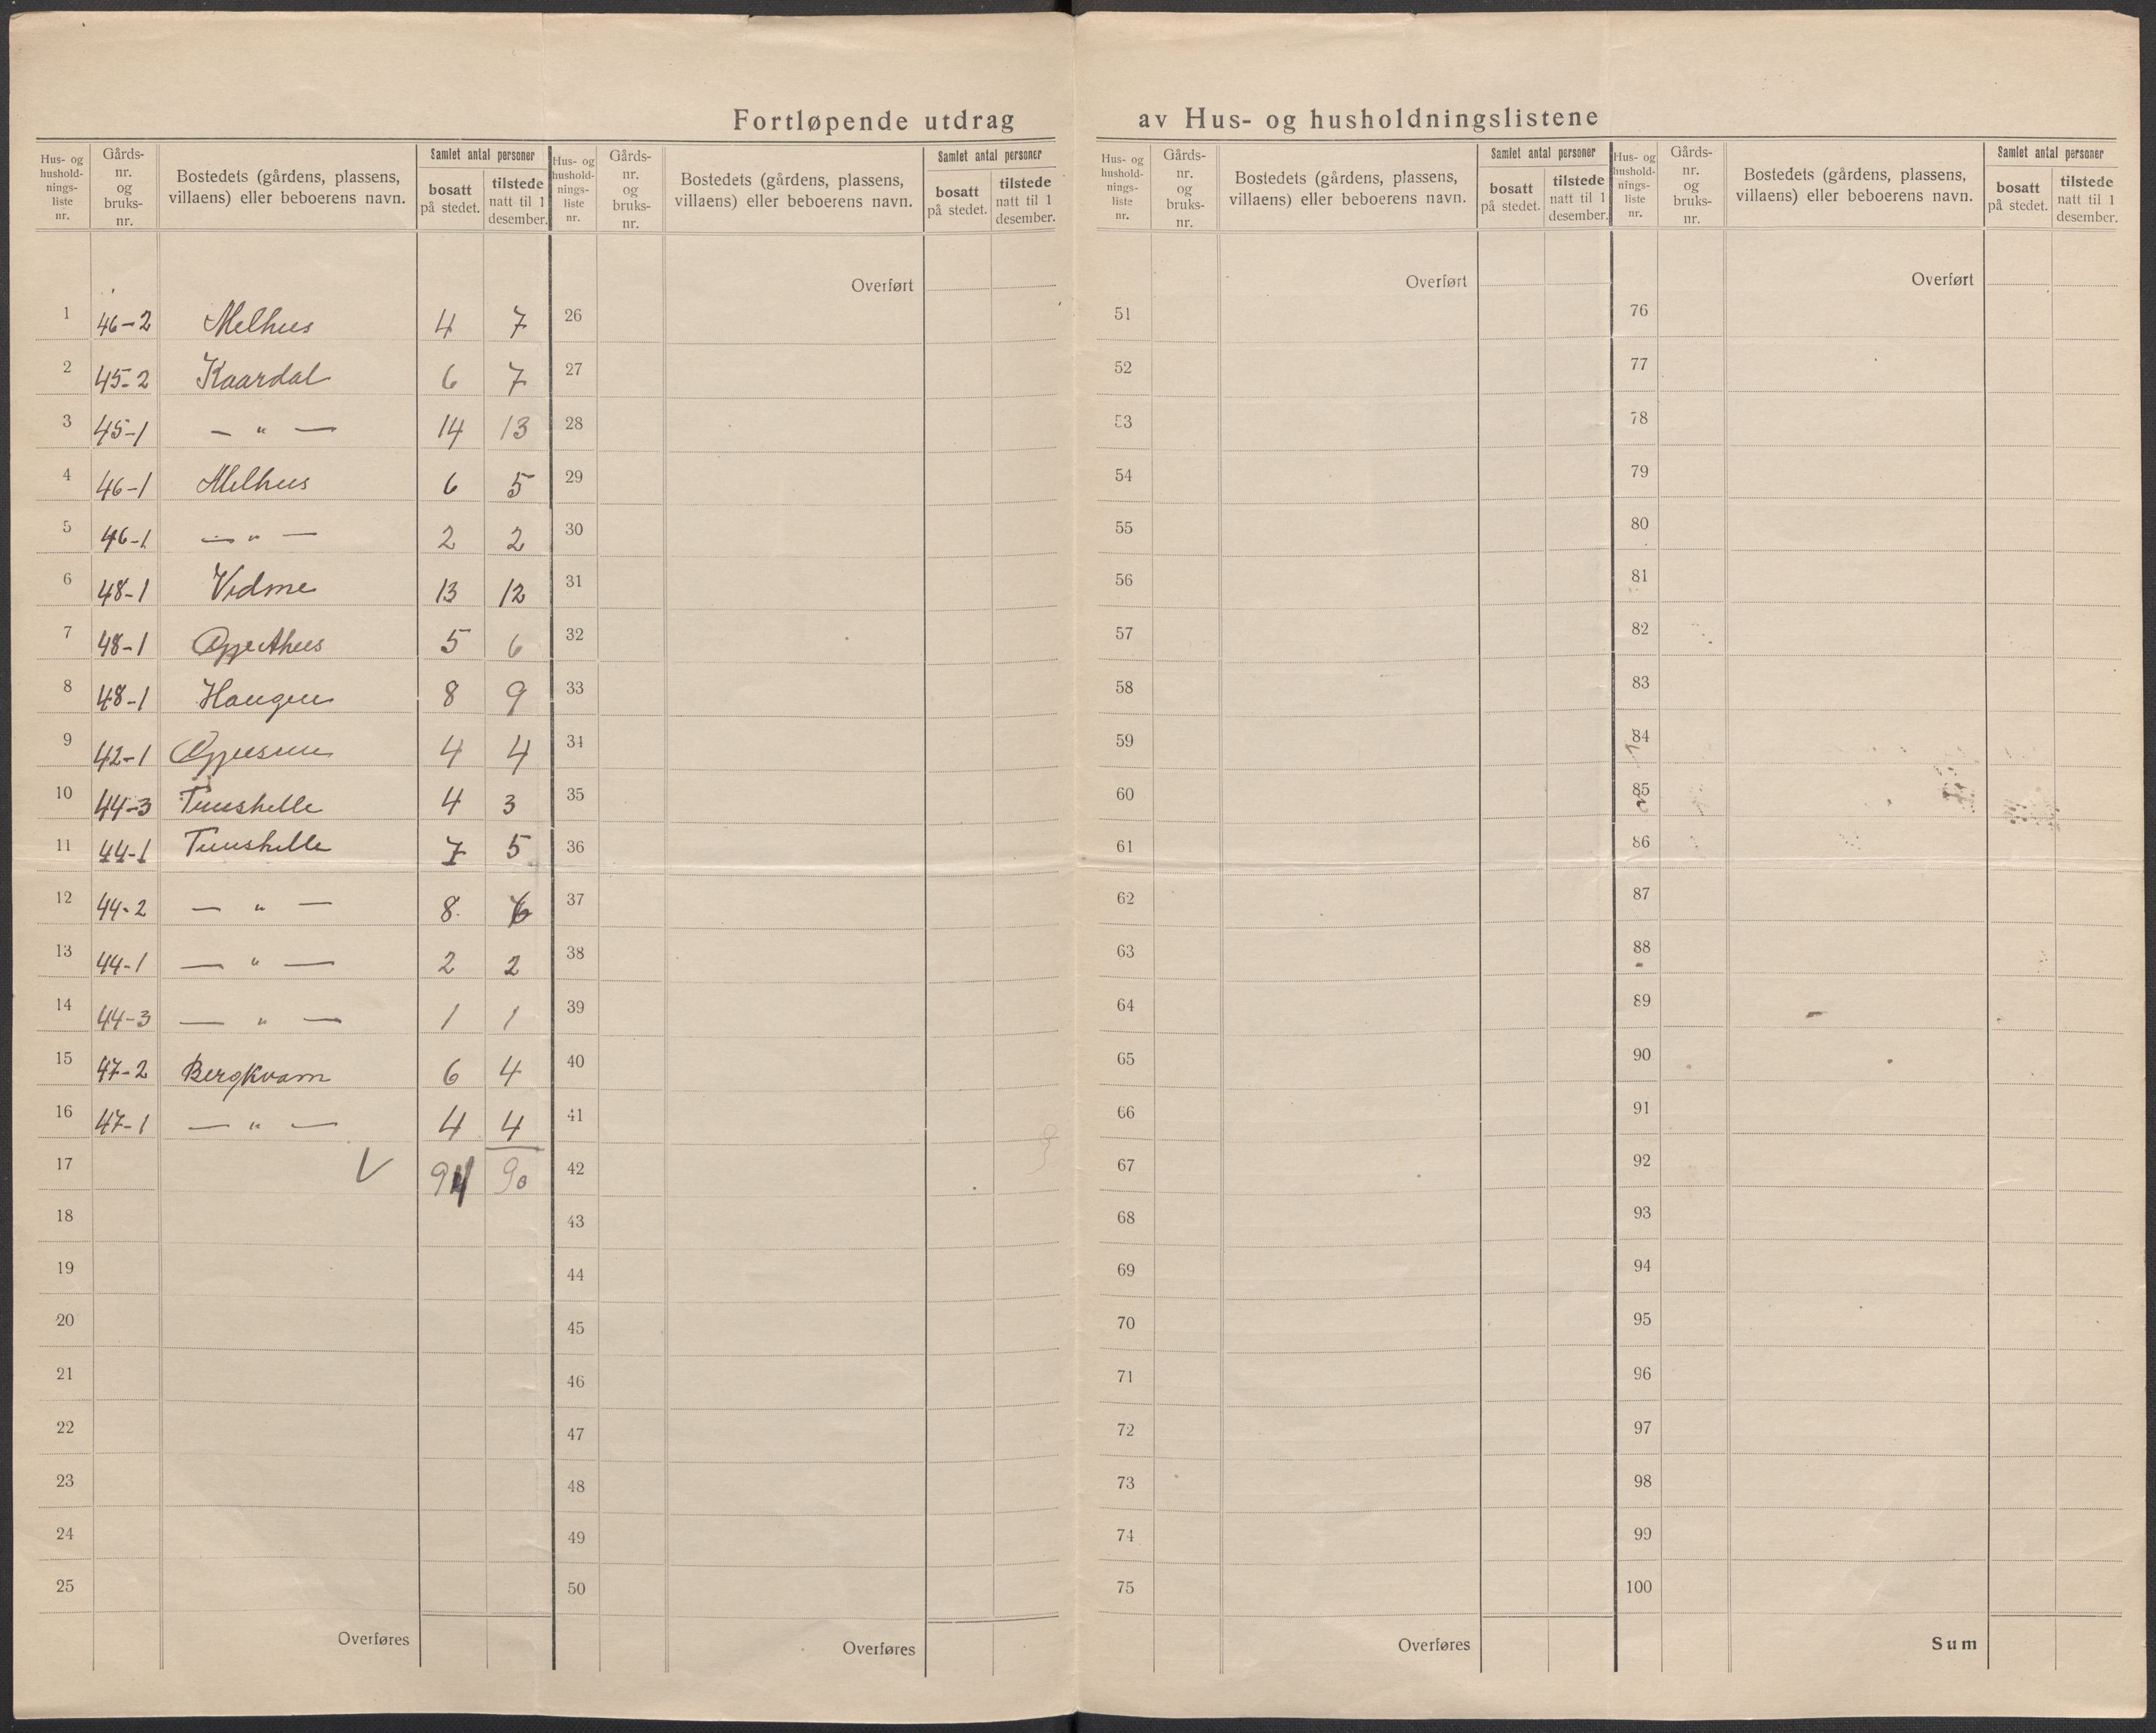 Fortløpende utdrag av Hus- og husholdningslistene
Hus- og hushold-nings-liste nr. Gårds-nr. og bruks-nr. Bostedets (gårdens, plassens, villaens) eller beboerens navn. Samlet antal personer bosatt på stedet. tilstede natt til 1 desember.
1 46-2 Melhus 4 7
2 45-2 Kaardal 6 7
3 45-1 — " — 14 13
4 46-1 Melhus 6 5
5 46-1 — " — 2 2
6 48-1 Vidme 13 12
7 48-1 5 6
8 48-1 Haugen 8 9
9 42-1 4 4
10 44-3 4 3
11 44-1 7 5
12 44-2 — " — 8 6
13 44-1 — " — 2 2
14 44-3 — " — 1 1
15 47-2 Bergkvam 6 4
16 47-1 — " — 4 4
17 94 90
18
19
20
21
22
23
24
25
Overføres
Hus- og hushold-nings-liste nr. Gårds-nr. og bruks-nr. Bostedets (gårdens, plassens, villaens) eller beboerens navn. Samlet antal personer bosatt på stedet. tilstede natt til 1 desember.
Overført
26
27
28
29
30
31
32
33
34
35
36
37
38
39
40
41
42
43
44
45
46
47
48
49
50
Overføres
Hus- og hushold-nings-liste nr. Gårds-nr. og bruks-nr. Bostedets (gårdens, plassens, villaens) eller beboerens navn. Samlet antal personer bosatt på stedet. tilstede natt til 1 desember.
Overført
51
52
53
54
55
56
57
58
59
60
61
62
63
64
65
66
67
68
69
70
71
72
73
74
75
Overføres
Hus- og hushold-nings-liste nr. Gårds-nr. og bruks-nr. Bostedets (gårdens, plassens, villaens) eller beboerens navn. Samlet antal personer bosatt på stedet. tilstede natt til 1 desember.
Overført
76
77
78
79
80
81
82
83
84
85
86
87
88
89
90
91
92
93
94
95
96
97
98
99
100
Sum